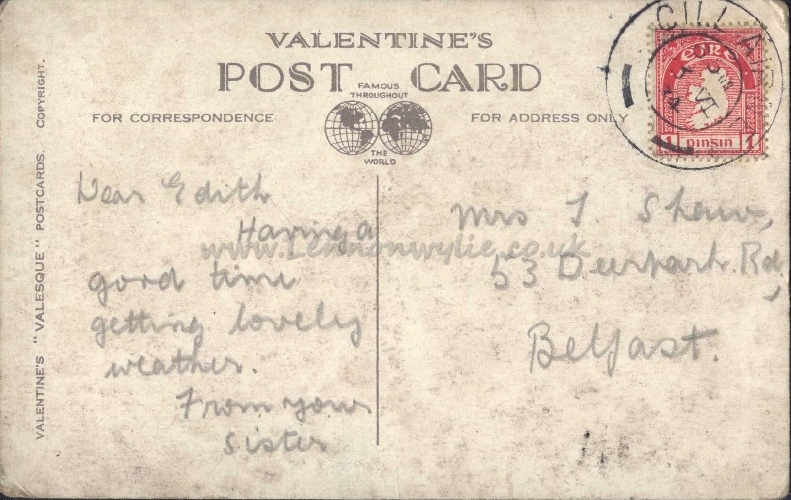 VALENTINE'S
POST CARD
FAMOUS
THROUGHOUT
THE
WORLD
FOR CORRESPONDENCE
FOR ADDRESS ONLY
VALENTINE'S "VALESQUE" POSTCARDS. COPYRIGHT.
CILL AIR
éire
1 pinsin 1
Dear Edith
Having a
good time
getting lovely
weather.
From your
sister
Mrs T. Shaw,
53 Deerpark Rd,
Belfast.
www.Lennonwylie.co.uk